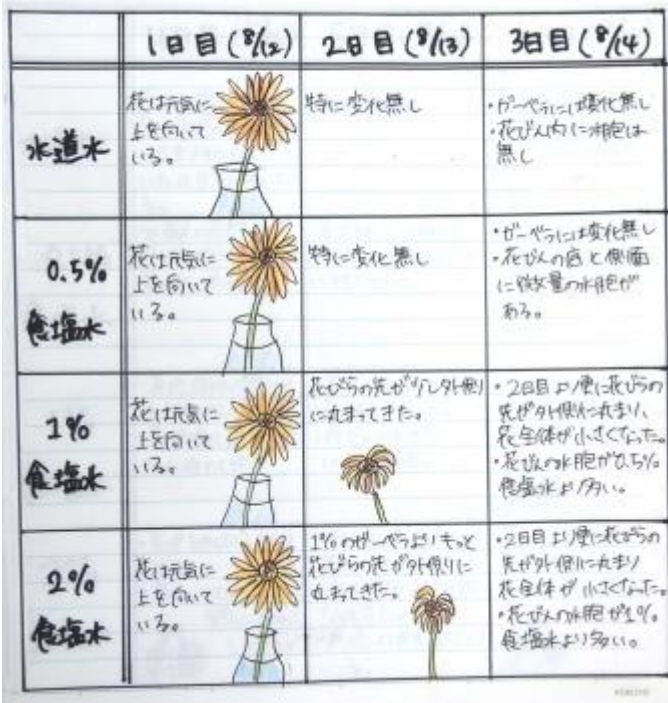 1日目(8/12)
2日目(8/13)
3日目(8/14)
水道水
花は元気に
上を向いて
いる。
特に変化無し
・ガーベラには変化無し
・花びん内に水胞は
無し
0.5%
食塩水
花は元気に
上を向いて
いる。
特に変化無し
・ガーベラには変化無し
・花びんの底と側面
に微量の水胞が
ある。
1%
食塩水
花は元気に
上を向いて
いる。
花びらの先が少し外側
に丸まってきた。
・2日目より更に花びらの
先が外側に丸まり、
花全体が小さくなった。
・花びんの水胞が0.5%
食塩水より多い。
2%
食塩水
花は元気に
上を向いて
いる。
1%のガーベラよりもっと
花びらの先が外側に
丸まってきた。
・2日目より更に花びらの
先が外側に丸まり
花全体が小さくなった。
・花びんの水胞が1%
食塩水より多い。